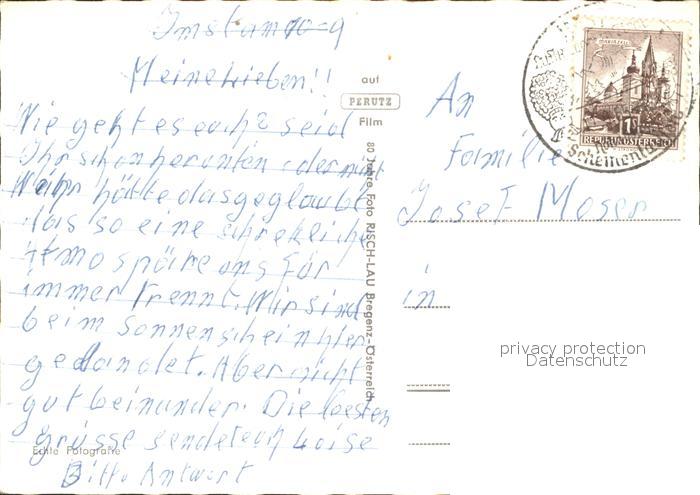 Imst am 10-9
Meine Lieben!!
Wie geht es euch? seid
Ihr schon herunten oder nicht
Wehr hätte das geglaubt
das so eine schrekliche
Atmospäre uns Für
immer Trennt. Wir sind
beim Sonnenschein hier
gelandet. Aber nicht
gut beinander. Die besten
grüsse sendet euch Loise
Bitte Antwort
Echte Fotografie
auf
PERUTZ
Film
80 Jahre Foto RISCH-LAU Bregenz-Österreich
An
Familie
Josef Moser
in
MARIAZELL
1S
REPUBLIK ÖSTERREICH
privacy protection
Datenschutz